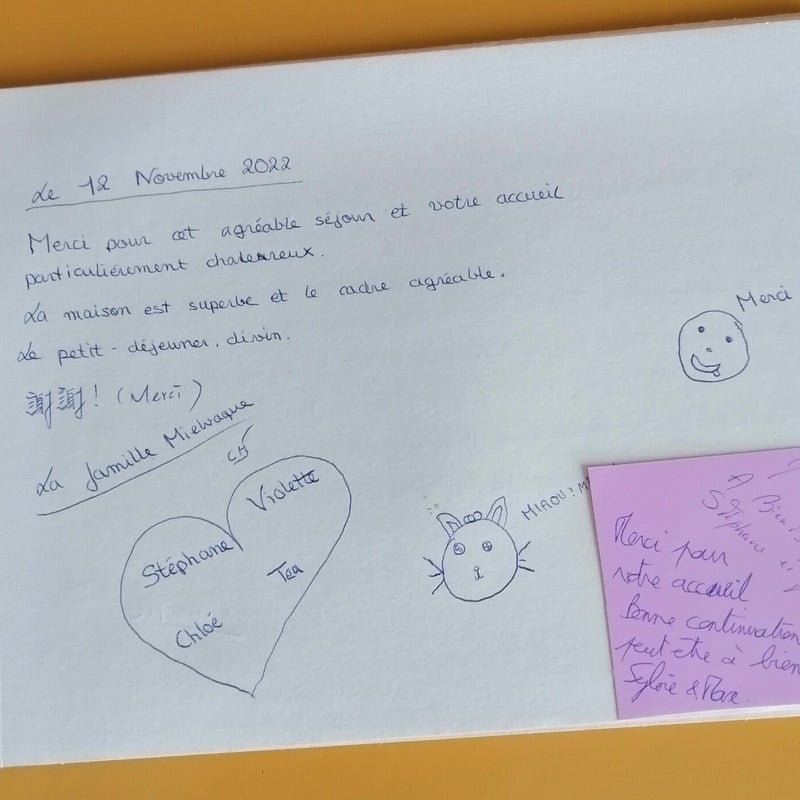 Le 12 Novembre 2022
Merci pour cet agréable séjour et votre accueil
particulièrement chaleureux.
La maison est superbe et le cadre agréable.
Le petit-déjeuner, divin.
謝謝! (Merci)
La famille Mielvaque
Violette
Stéphane
Tea
Chloé
Merci
MIAOU!
A Bien
Stéphane et
Merci pour
votre accueil
Bonne continuation
peut être à bien
Sylvie & Max.